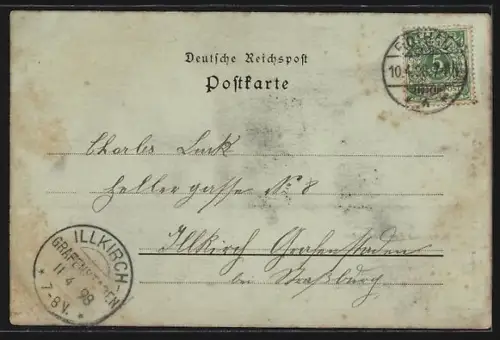 Deutsche Reichspost
Postkarte
10.4.98.7-8N.
5
Charles Luck
Kellergasse No 8
Illkirch Grafenstaden
bei Straßburg
ILLKIRCH-
GRAFENSTADEN
11 4 98
* 7-8V. *